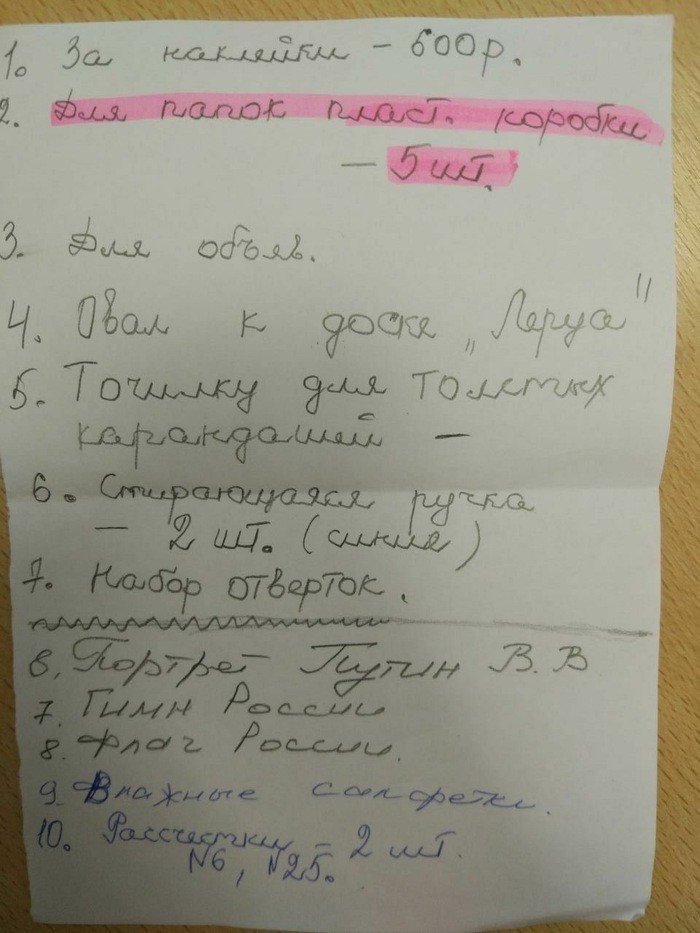 1. За наклейки - 600р.
2. Для папок пласт. коробки
- 5 шт.
3. Для объяв.
4. Овал к доске „Леруа"
5. Точилку для толстых
карандашей -
6. Стирающаяся ручка
- 2 шт. (синие)
7. Набор отверток.
6. Портрет Путин В. В
7. Гимн России
8. Флаг России.
9. Влажные салфетки.
10. Рассчестки - 2 шт.
N6, N25.